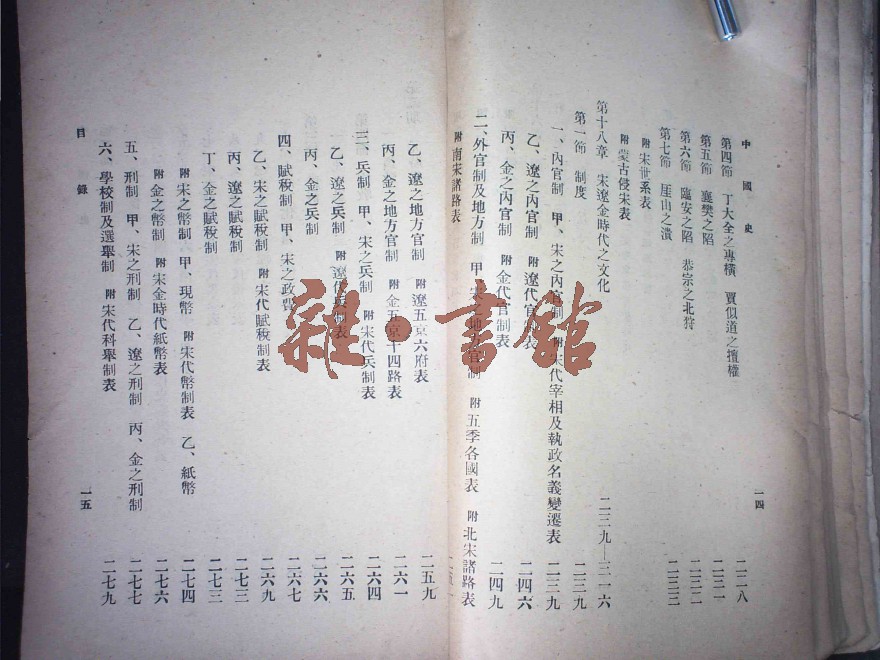 中國史
一四
第四節 丁大全之專橫 賈似道之擅權 二二八
第五節 襄樊之陷 二三一
第六節 臨安之陷 恭宗之北狩 二三二
第七節 厓山之潰 二三三
附宋世系表
附蒙古侵宋表
第十八章 宋遼金時代之文化 二三九—三一六
第一節 制度 二三九
一、內官制 甲、宋之內官制 附宋代宰相及執政名義變遷表 二三九
乙、遼之內官制 附遼代官制表 二四六
丙、金之內官制 附金代官制表 二四九
二、外官制及地方制 甲、宋之地方官制 附五季各國表 附北宋諸路表
附南宋諸路表
乙、遼之地方官制 附遼五京六府表 二五九
丙、金之地方官制 附金五京十四路表 二六一
三、兵制 甲、宋之兵制 附宋代兵制表 二六四
乙、遼之兵制 附遼代兵制表 二六五
丙、金之兵制 二六六
四、賦稅制 甲、宋之政費 二六七
乙、宋之賦稅制 附宋代賦稅制表 二六九
丙、遼之賦稅制 二七三
丁、金之賦稅制 二七三
附宋之幣制 甲、現幣 附宋代幣制表 乙、紙幣 二七四
附金之幣制 附宋金時代紙幣表 二七六
五、刑制 甲、宋之刑制 乙、遼之刑制 丙、金之刑制 二七七
六、學校制及選舉制 附宋代科舉制表 二七九
目錄
一五
雜書館